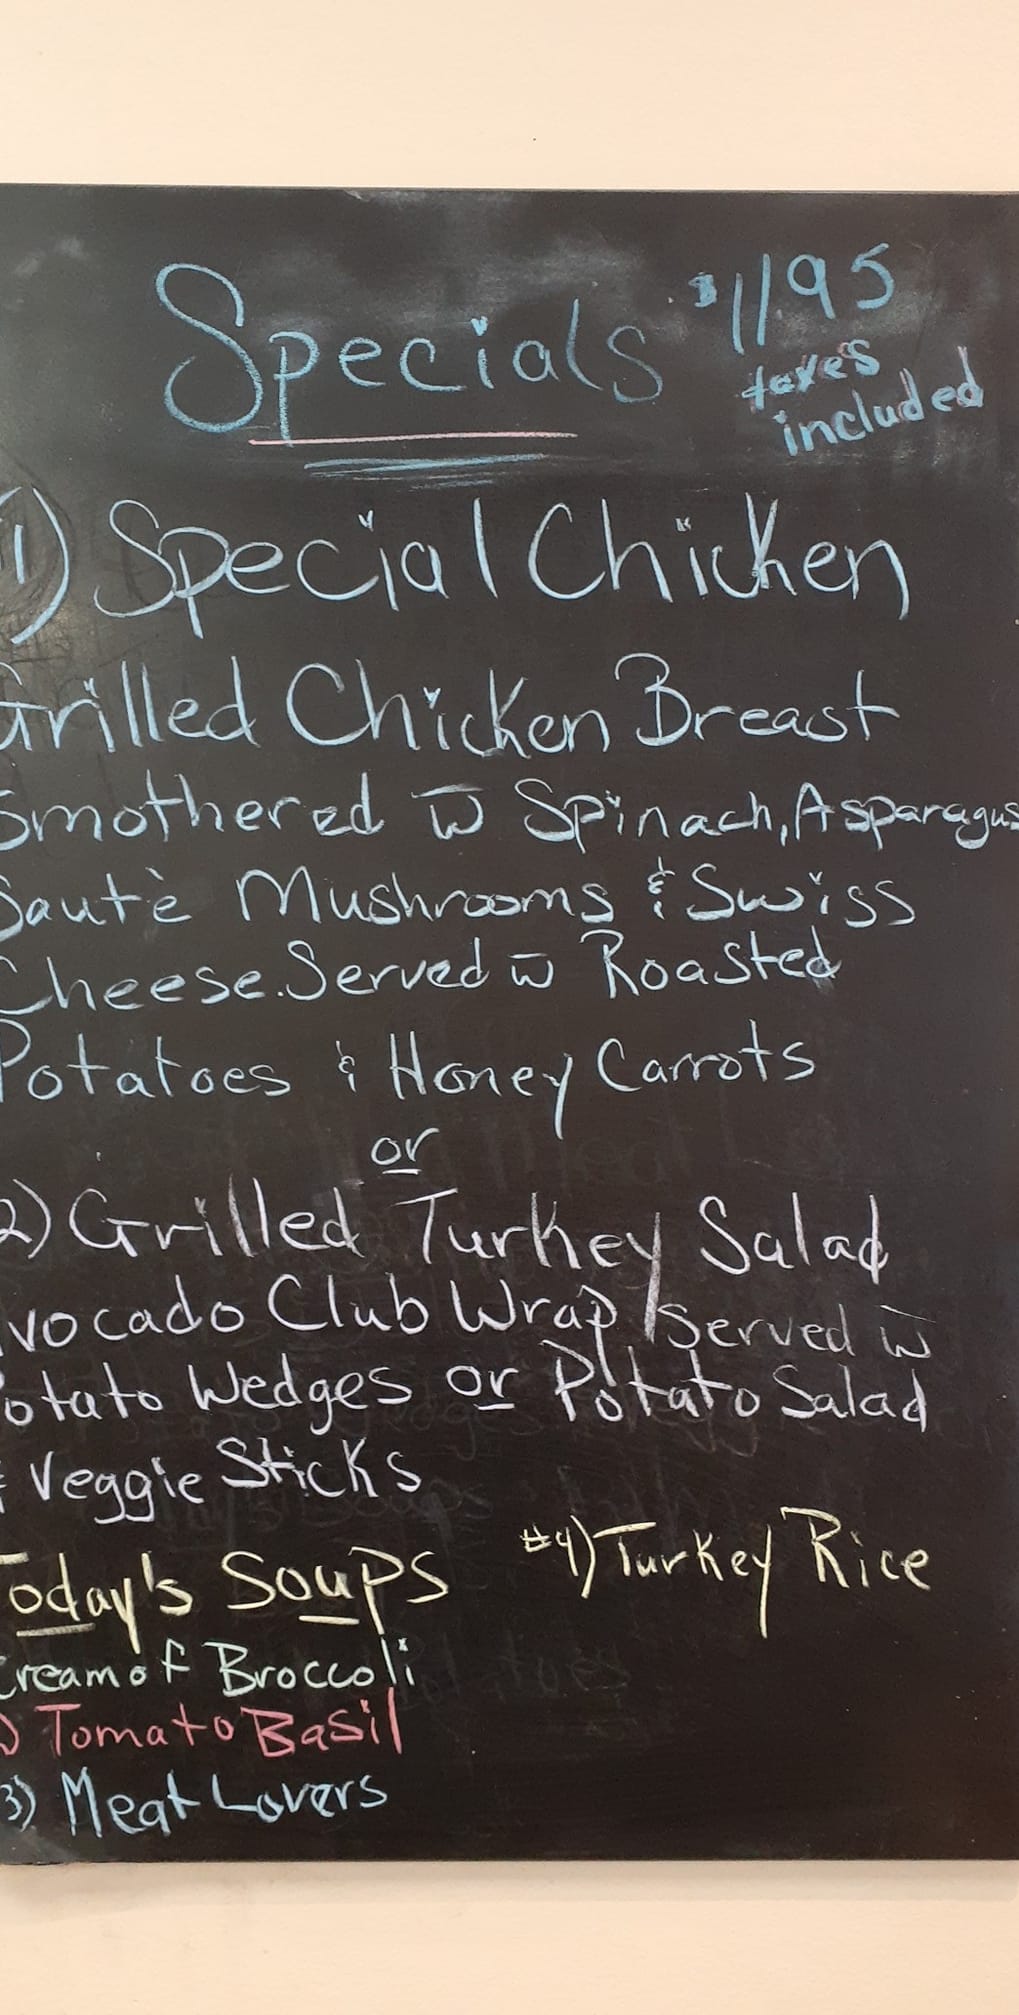 Specials $11.95
taxes
included
1) Special Chicken
Grilled Chicken Breast
Smothered w̄ Spinach, Asparagus
Sautè Mushrooms & Swiss
Cheese. Served w̄ Roasted
Potatoes & Honey Carrots
or
2) Grilled Turkey Salad
Avocado Club Wrap / Served w̄
Potato Wedges or Potato Salad
& Veggie Sticks
Today's Soups #4) Turkey Rice
Cream of Broccoli
2) Tomato Basil
3) Meat Lovers